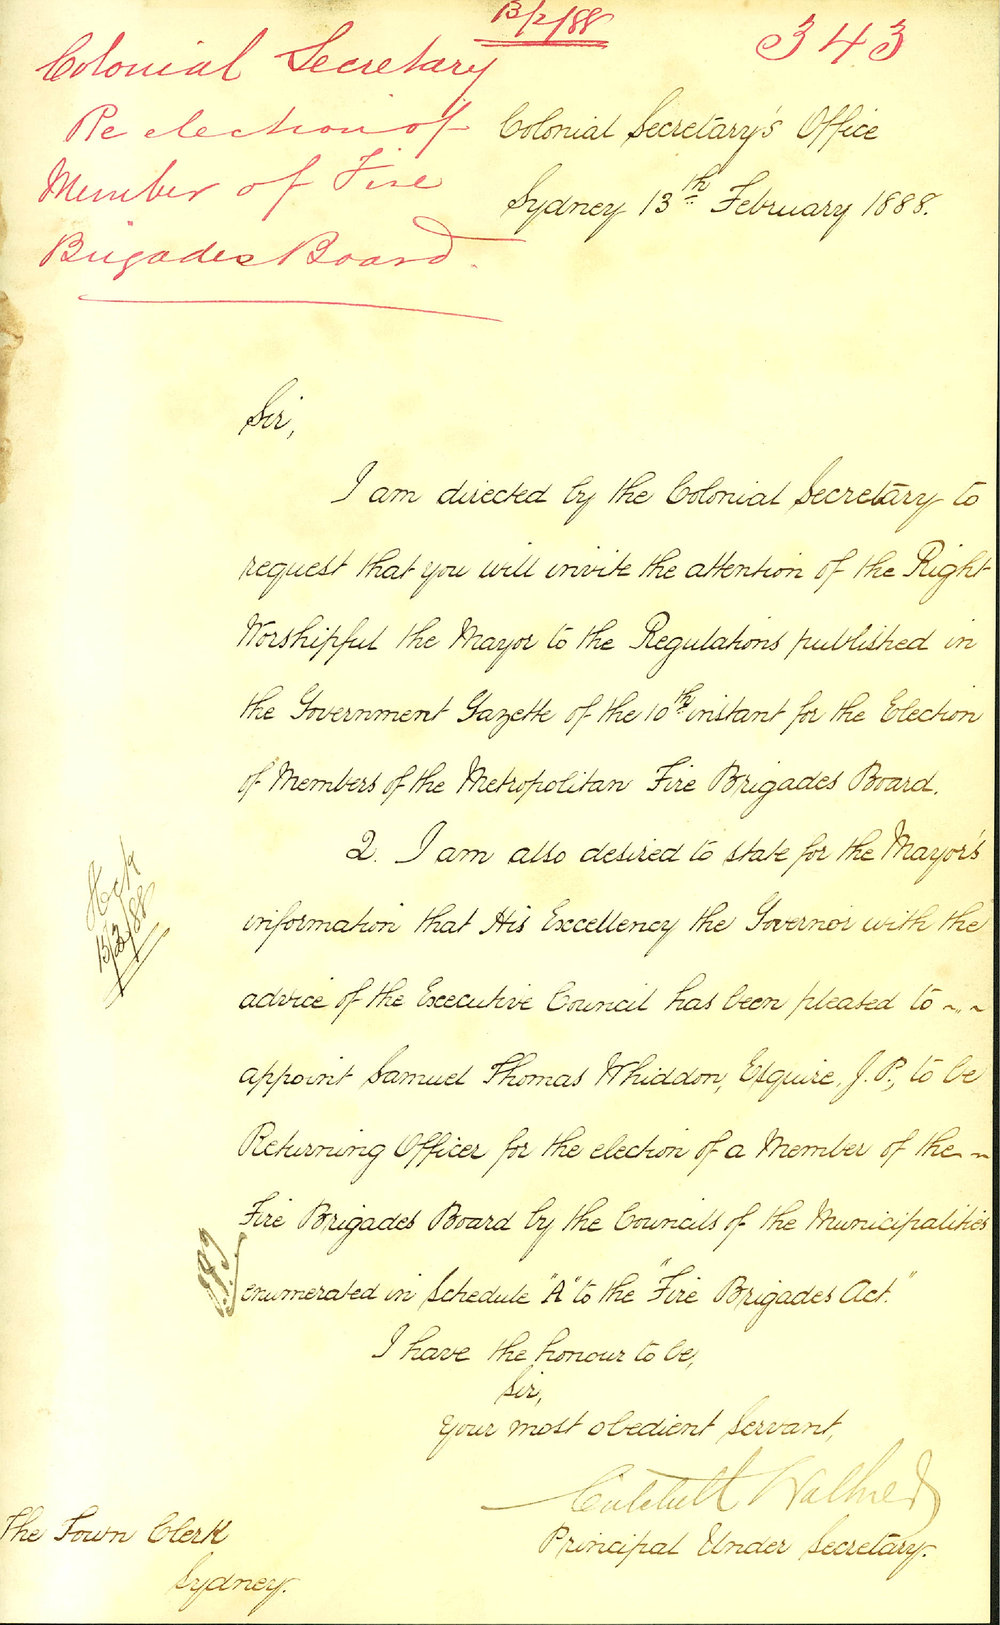 13/2/88
343
Colonial Secretary
Re election of
Member of Fire
Brigades Board.
Colonial Secretary's Office
Sydney 13th February 1888.
Sir,
I am directed by the Colonial Secretary to
request that you will invite the attention of the Right
Worshipful the Mayor to the Regulations published in
the Government Gazette of the 10th instant for the Election
of Members of the Metropolitan Fire Brigades Board.
2. I am also desired to state for the Mayor's
information that His Excellency the Governor with the
advice of the Executive Council has been pleased to ~ ~
appoint Samuel Thomas Whiddon, Esquire, J.P., to be
Returning Officer for the election of a Member of the ~ ~
Fire Brigades Board by the Councils of the Municipalities
enumerated in Schedule "A" to the "Fire Brigades Act."
I have the honour to be,
Sir,
Your most obedient Servant,
Critchett Walker
Principal Under Secretary.
The Town Clerk
Sydney.